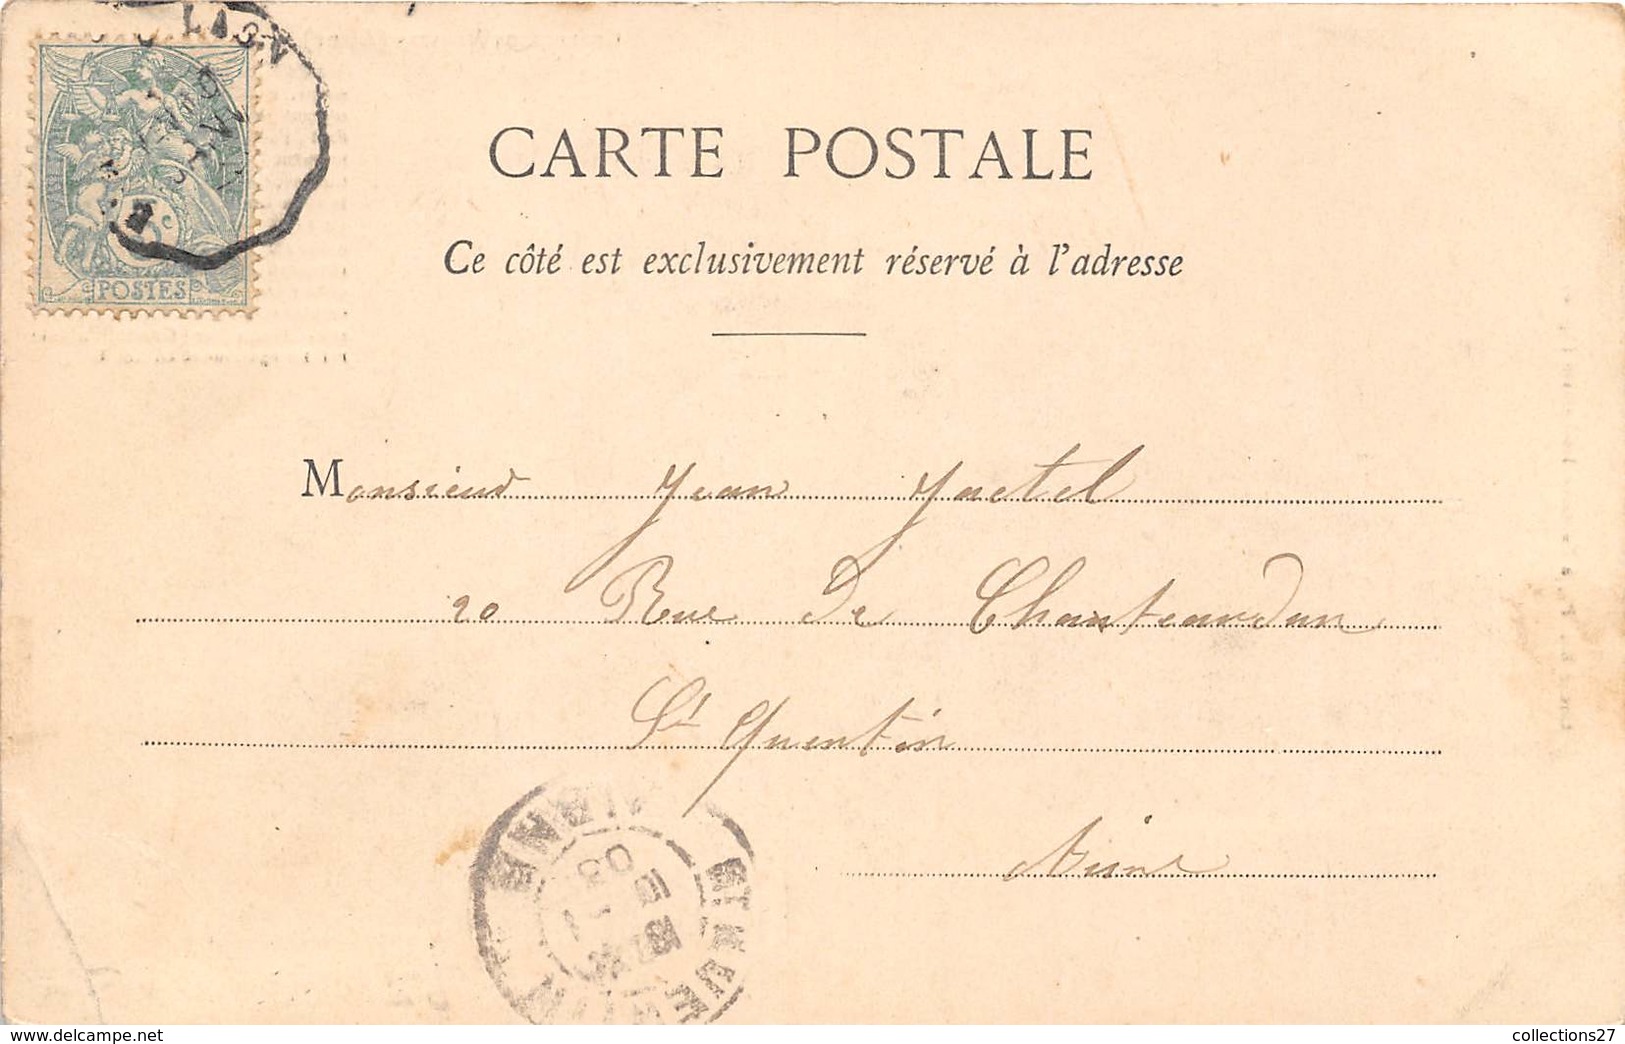 LAON
5c
POSTES
CARTE POSTALE
Ce côté est exclusivement réservé à l'adresse
Monsieur Jean Jactel
20 Rue de Chanteaudun
St Quentin
Aisne
ST QUENTIN
AISNE
03
collections27